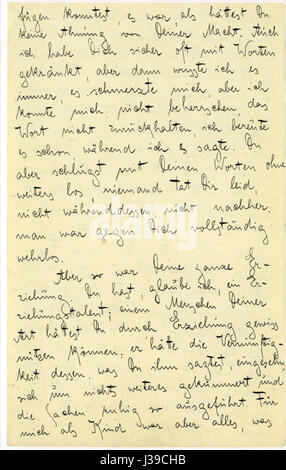 fügen konntest, es war als hättest Du
keine Ahnung von Deiner Macht. Auch
ich habe Dich sicher oft mit Worten
gekränkt, aber dann wusste ich es
immer, es schmerzte mich, aber ich
konnte mich nicht beherrschen das
Wort nicht zurückhalten, ich bereute
es schon während ich es sagte. Du
aber schlugst mit Deinen Worten ohne
weiters los niemand tat Dir leid,
nicht währenddessen, nicht nachher,
man war gegen Dich vollständig
wehrlos.
Aber so war Deine ganze Er-
ziehung. Du hast, glaube ich, ein Er-
ziehungstalent; einem Menschen Deiner
Art hättest Du durch Erziehung gewiss
nützen können; er hätte die Vernünftig-
keit dessen, was Du ihm sagtest, eingesehn,
sich um nichts weiteres gekümmert und
die Sachen ruhig so ausgeführt. Für
mich als Kind war aber alles, was
alamy
Image ID: J39CHB
www.alamy.com